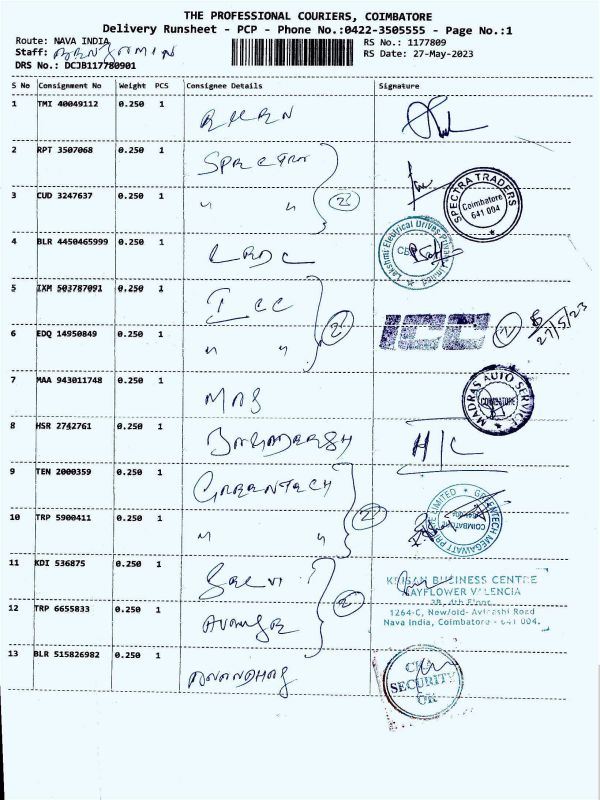 THE PROFESSIONAL COURIERS, COIMBATORE
Delivery Runsheet - PCP - Phone No.:0422-3505555 - Page No.:1
Route: NAVA INDIA
RS No.: 1177809
Staff: BENJAMIN
RS Date: 27-May-2023
DRS No.: DCJB117780901
S No Consignment No Weight PCS Consignee Details Signature
1 TMI 40049112 0.250 1
2 RPT 3507068 0.250 1 SPECTRA
SPECTRA TRADERS Coimbatore 641 004
3 CUD 3247637 0.250 1 " "
4 BLR 4450465999 0.250 1 LEDC
Lakshmi Electrical Drives Private Limited
5 IXM 503787091 0.250 1 ICC
ICC
27/5/23
6 EDQ 14950849 0.250 1 " "
7 MAA 943011748 0.250 1 MAS
MADRAS AUTO SERVICE COIMBATORE
8 HSR 2742761 0.250 1
H/C
9 TEN 2000359 0.250 1 GREENTECH
GREENTECH MEGAWATT LIMITED COIMBATORE
10 TRP 5900411 0.250 1 " "
11 KDI 536875 0.250 1
BUSINESS CENTRE
MAYFLOWER VALENCIA
4th Floor
1264-C, New/old- Avinashi Road
Nava India, Coimbatore - 641 004.
12 TRP 6655833 0.250 1
13 BLR 515826982 0.250 1
SECURITY